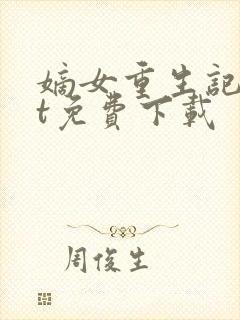 嫡女重生記
t免費下載
周俊生